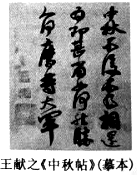 中秋不復不得相還
為即甚省如何然勝
人何慶等大軍
王献之《中秋帖》(摹本)